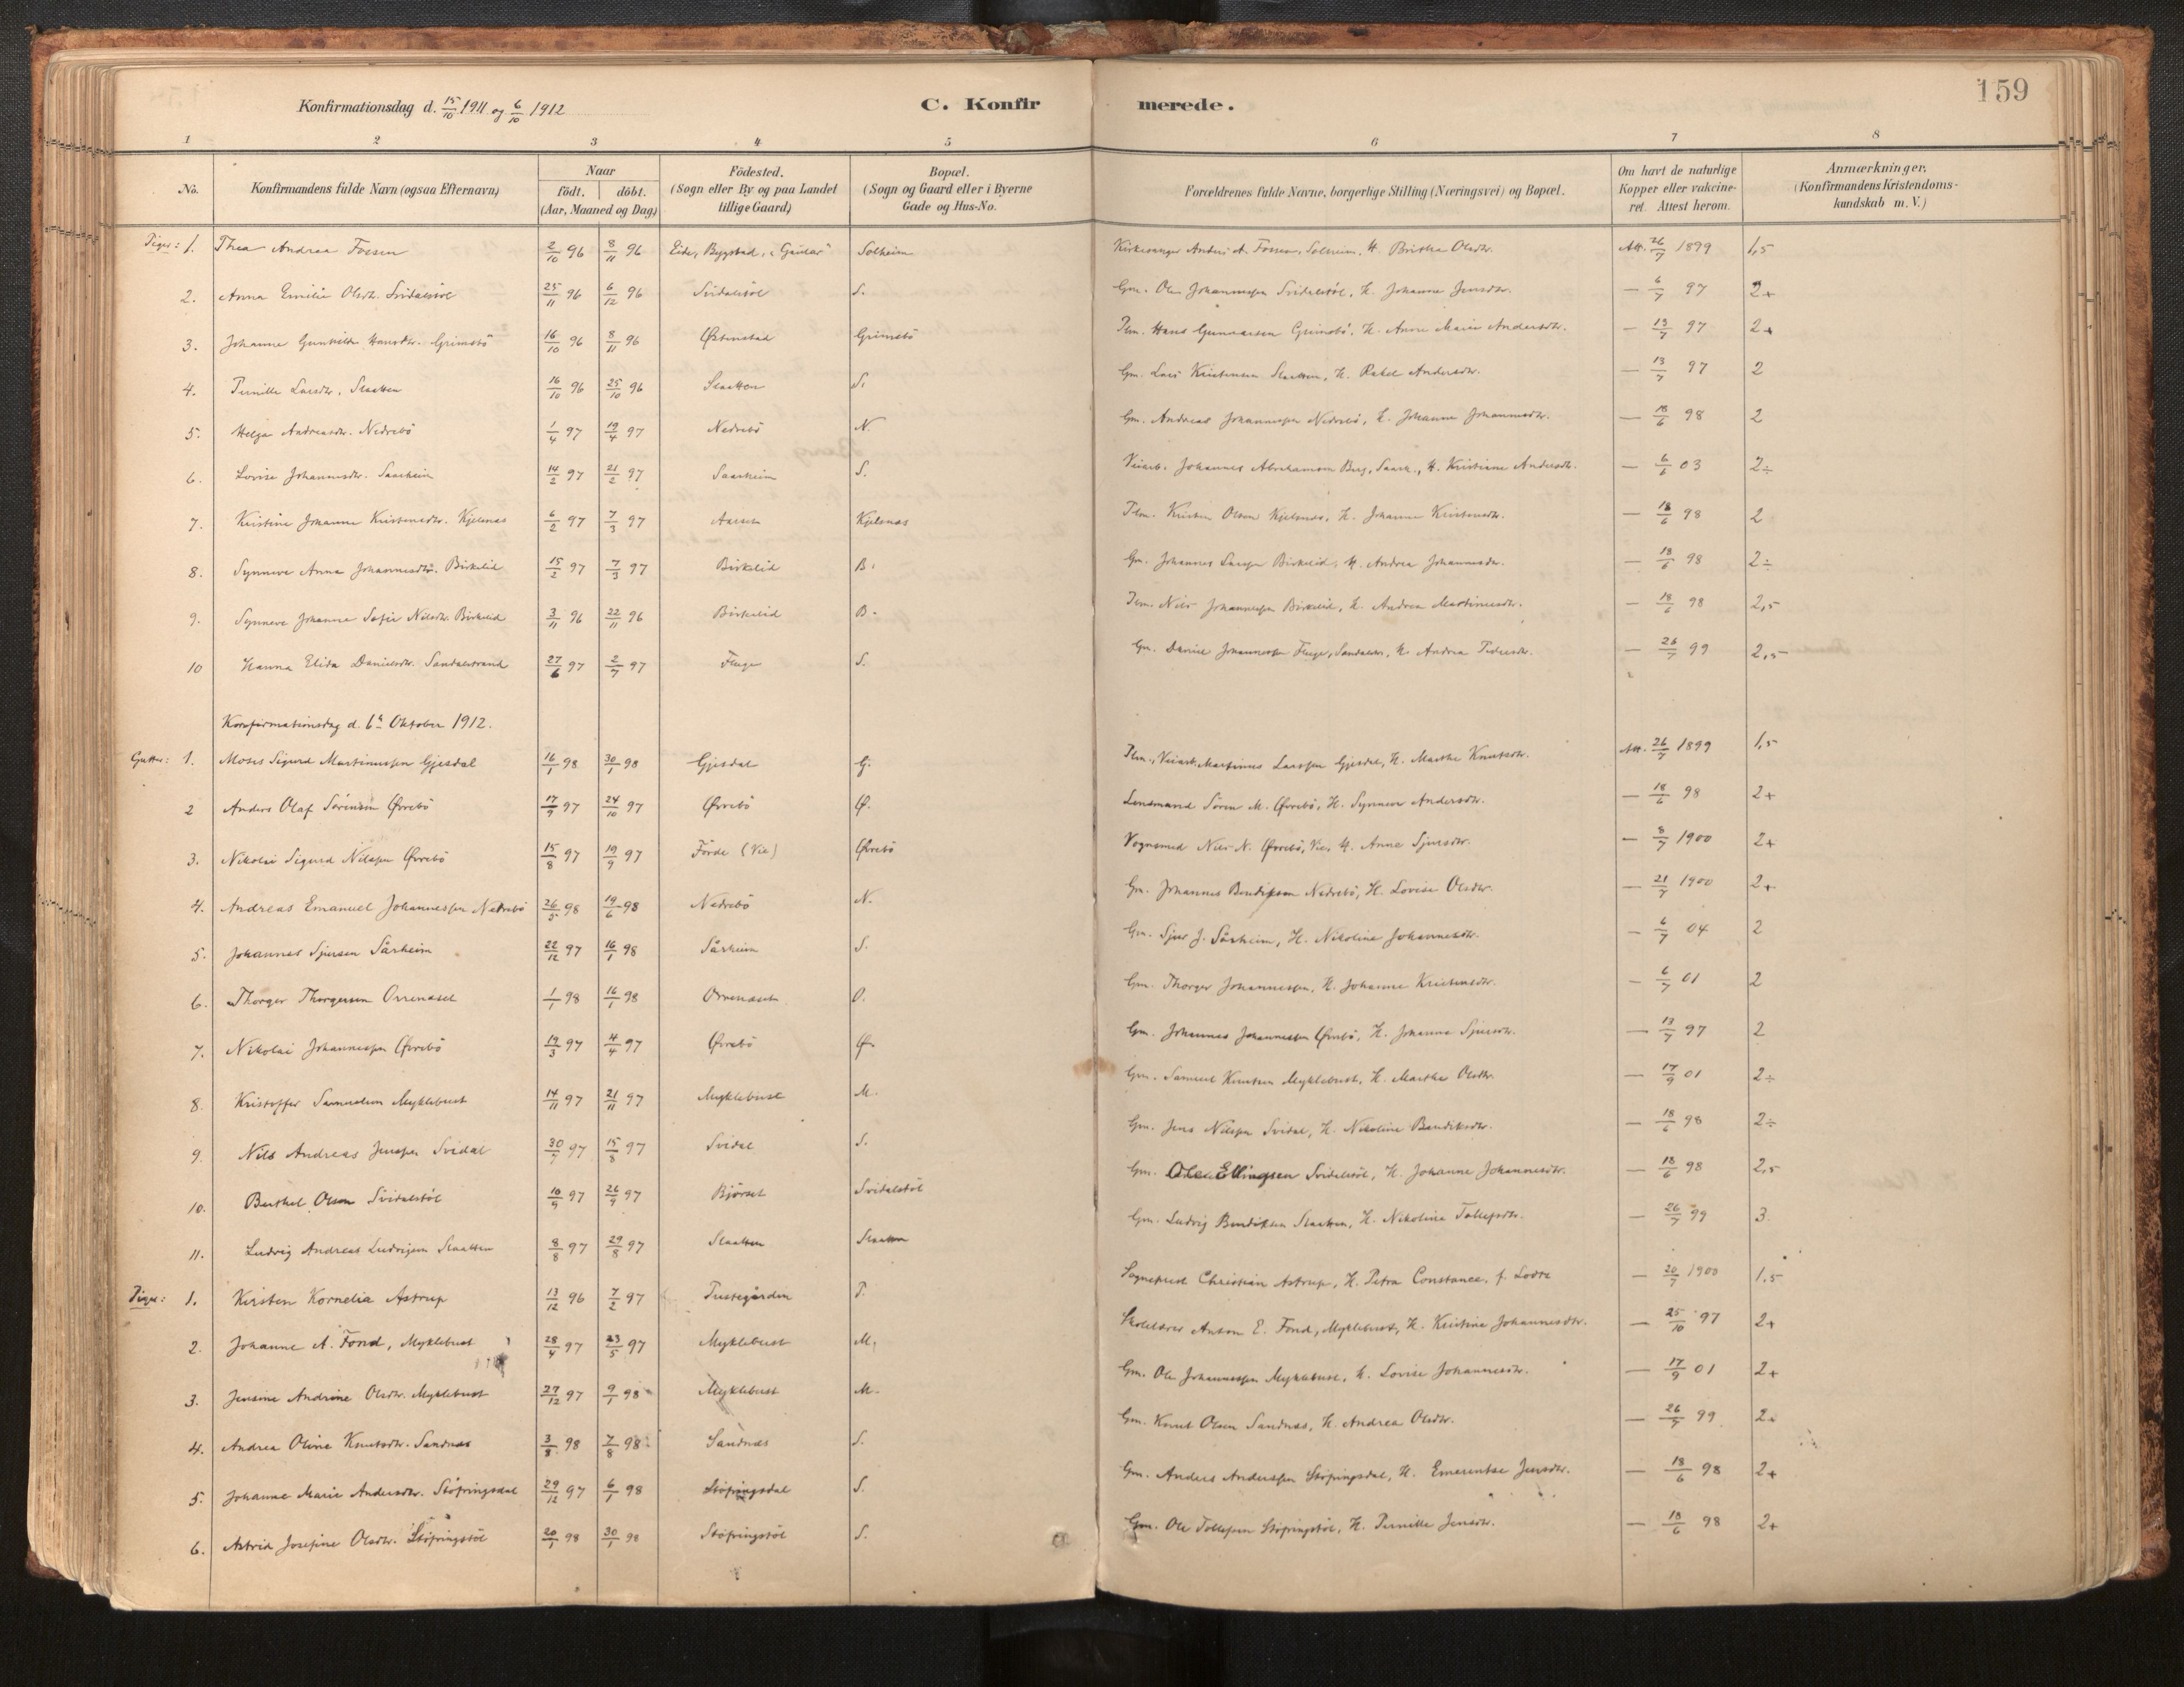 159
Konfirmationsdag d. 15/10 1911 og 6/10 1912
C. Konfirmerede.
1 2 3 4 5 6 7 8
No.
Konfirmandens fulde Navn (ogsaa Efternavn)
Naar
födt. döbt.
(Aar, Maaned og Dag)
Födested.
(Sogn eller By og paa Landet
tillige Gaard)
Bopæl.
(Sogn og Gaard eller i Byerne
Gade og Hus-No.
Forældrenes fulde Navne, borgerlige Stilling (Næringsvei) og Bopæl.
Om havt de naturlige
Kopper eller vakcine-
ret. Attest herom.
Anmærkninger.
(Konfirmandens Kristendoms-
kundskab m. V.)
Piger: 1. Thea Andrea Fossen 2/10 96 8/11 96 Eide, Bygstad, "Gaular" Solheim Kirkesanger Anders A. Fossen, Solheim, H. Brithe Olsdtr. Att. 26/7 1899 1,5
2. Anna Emilie Olsdtr. Svidalstöl 25/11 96 6/12 96 Svidalstöl S. Gm. Ole Johannessen Svidalstöl, H. Johanne Jensdtr. — 6/7 97 2+
3. Johanne Gunhilda Hansdtr. Grimsbö 16/10 96 8/11 96 Östenstad Grimsbö Plm. Hans Gunnarsen Grimsbö, H. Anne Marie Andersdtr. — 13/7 97 2+
4. Pernille Larsdtr. Slaatten 16/10 96 25/10 96 Slaatten S. Gm. Lars Kristensen Slaatten, H. Rakel Andersdtr. — 13/7 97 2
5. Helga Andreasdtr. Nedrebö 1/4 97 19/4 97 Nedrebö N. Gm. Andreas Johannessen Nedrebö, H. Johanne Johannesdtr. — 18/6 98 2
6. Lovise Johannesdtr. Saarheim 14/2 97 21/2 97 Saarheim S. Veiarb. Johannes Abrahamsen Berg, Saarh., H. Kristiane Andersdtr. — 6/6 03 2÷
7. Kristine Johanne Kristensdtr. Kjelsnes 6/2 97 7/3 97 Kjelsnæs Plm. Kristen Olsen Kjelsnæs, H. Johanne Kristensdtr. — 18/6 98 2
8. Synneve Anna Johannesdtr. Birkelid 15/2 97 7/3 97 Birkelid B. Gm. Johannes Larsen Birkelid, H. Andrea Johannesdtr. — 18/6 98 2÷
9. Synneve Johanne Sofie Nilsdtr. Birkelid 3/11 96 22/11 96 Birkelid B. Plm. Nils Johannessen Birkelid, H. Andrea Martinusdtr. — 18/6 98 2,5
10 Hanna Elida Danielsdtr. Sandalstrand 27/6 97 2/7 97 Fluge S. Gm. Daniel Johannessen Fluge, Sandalstr., H. Andrea Pedersdtr. — 26/7 99 2,5
Konfirmationsdag d. 6te Oktober 1912.
Gutter: 1. Moses Sigurd Martinussen Gjesdal 16/1 98 30/1 98 Gjesdal G. Plm., Veiarb. Martinus Larssen Gjesdal, H. Marthe Knutsdtr. Att. 26/7 1899 1,5
2 Anders Olaf Sörensen Övrebö 17/9 97 24/10 97 Övrebö Ö. Lensmand Sören M. Övrebö, H. Synneve Andersdtr. — 18/6 98 2+
3. Nikolai Sigurd Nilssen Övrebö 15/8 97 19/9 97 Förde (Vie) Övrebö Vognsmed Nils N. Övrebö, Vie, H. Anne Sjursdtr. — 8/7 1900 2+
4. Andreas Emanuel Johannessen Nedrebö 26/5 98 19/6 98 Nedrebö N. Gm. Johannes Bendiksen Nedrebö, H. Lovise Olsdtr. — 21/7 1900 2+
5. Johannes Sjursen Sårheim 22/12 97 16/1 98 Sårheim S. Gm. Sjur J. Sårheim, H. Nikoline Johannesdtr. — 6/7 04 2
6. Thorger Thorgersen Orrenæset 1/1 98 16/1 98 Orrenæset O. Gm. Thorger Johannessen, H. Johanne Kristensdtr. — 6/7 01 2
7. Nikolai Johannessen Övrebö 19/3 97 4/4 97 Övrebö Ö. Gm. Johannes Johannessen Övrebö, H. Johanne Sjursdtr. — 13/7 97 2
8. Kristoffer Samuelsen Myklebust 14/11 97 21/11 97 Myklebust M. Gm. Samuel Knutsen Myklebust, H. Marthe Olsdtr. — 17/9 01 2÷
9. Nils Andreas Jenssen Svidal 30/7 97 15/8 97 Svidal S. Gm. Jens Nilssen Svidal, H. Nikoline Bendiksdtr. — 18/6 98 2÷
10. Berthel Olsen Svidalstöl 10/9 97 26/9 97 Björset Svidalstöl Gm. Ole Ellingsen Svidalstöl, H. Johanne Johannesdtr. — 18/6 98 2,5
11. Ludvig Andreas Ludvigsen Slaatten 8/8 97 29/8 97 Slaatten Slaatten Gm. Ludvig Bendiksen Slaatten, H. Nikolina Tollefsdtr. — 26/7 99 3.
Piger: 1. Kirsten Kornelia Astrup 13/12 96 7/2 97 Prestegården P. Sogneprest Christian Astrup, H. Petra Constance, f. Lodtz — 20/7 1900 1,5
2. Johanne A. Fond, Myklebust 28/4 97 23/5 97 Myklebust M. Skolelærer Anton E. Fond, Myklebust, H. Kristine Johannesdtr. — 25/10 97 2+
3. Jensine Andrine Olsdtr. Myklebust 27/12 97 9/1 98 Myklebust M. Gm. Ole Johannessen Myklebust, H. Lovise Johannesdtr. — 17/9 01 2+
4. Andrea Oline Knutsdtr. Sandnæs 3/8 98 7/8 98 Sandnæs S. Gm. Knut Olsen Sandnæs, H. Andrea Olsdtr. — 26/7 99 2+
5. Johanne Marie Andersdtr. Stöfringsdal 29/12 97 6/1 98 Stöfringsdal S. Gm. Anders Anderssen Stöfringsdal, H. Emerentse Jensdtr. — 18/6 98 2+
6. Astrid Josefine Olsdtr. Stöfringstöl 20/1 98 30/1 98 Stöfringstöl S. Gm. Ole Tollefsen Stöfringstöl, H. Pernille Jensdtr. — 18/6 98 2+